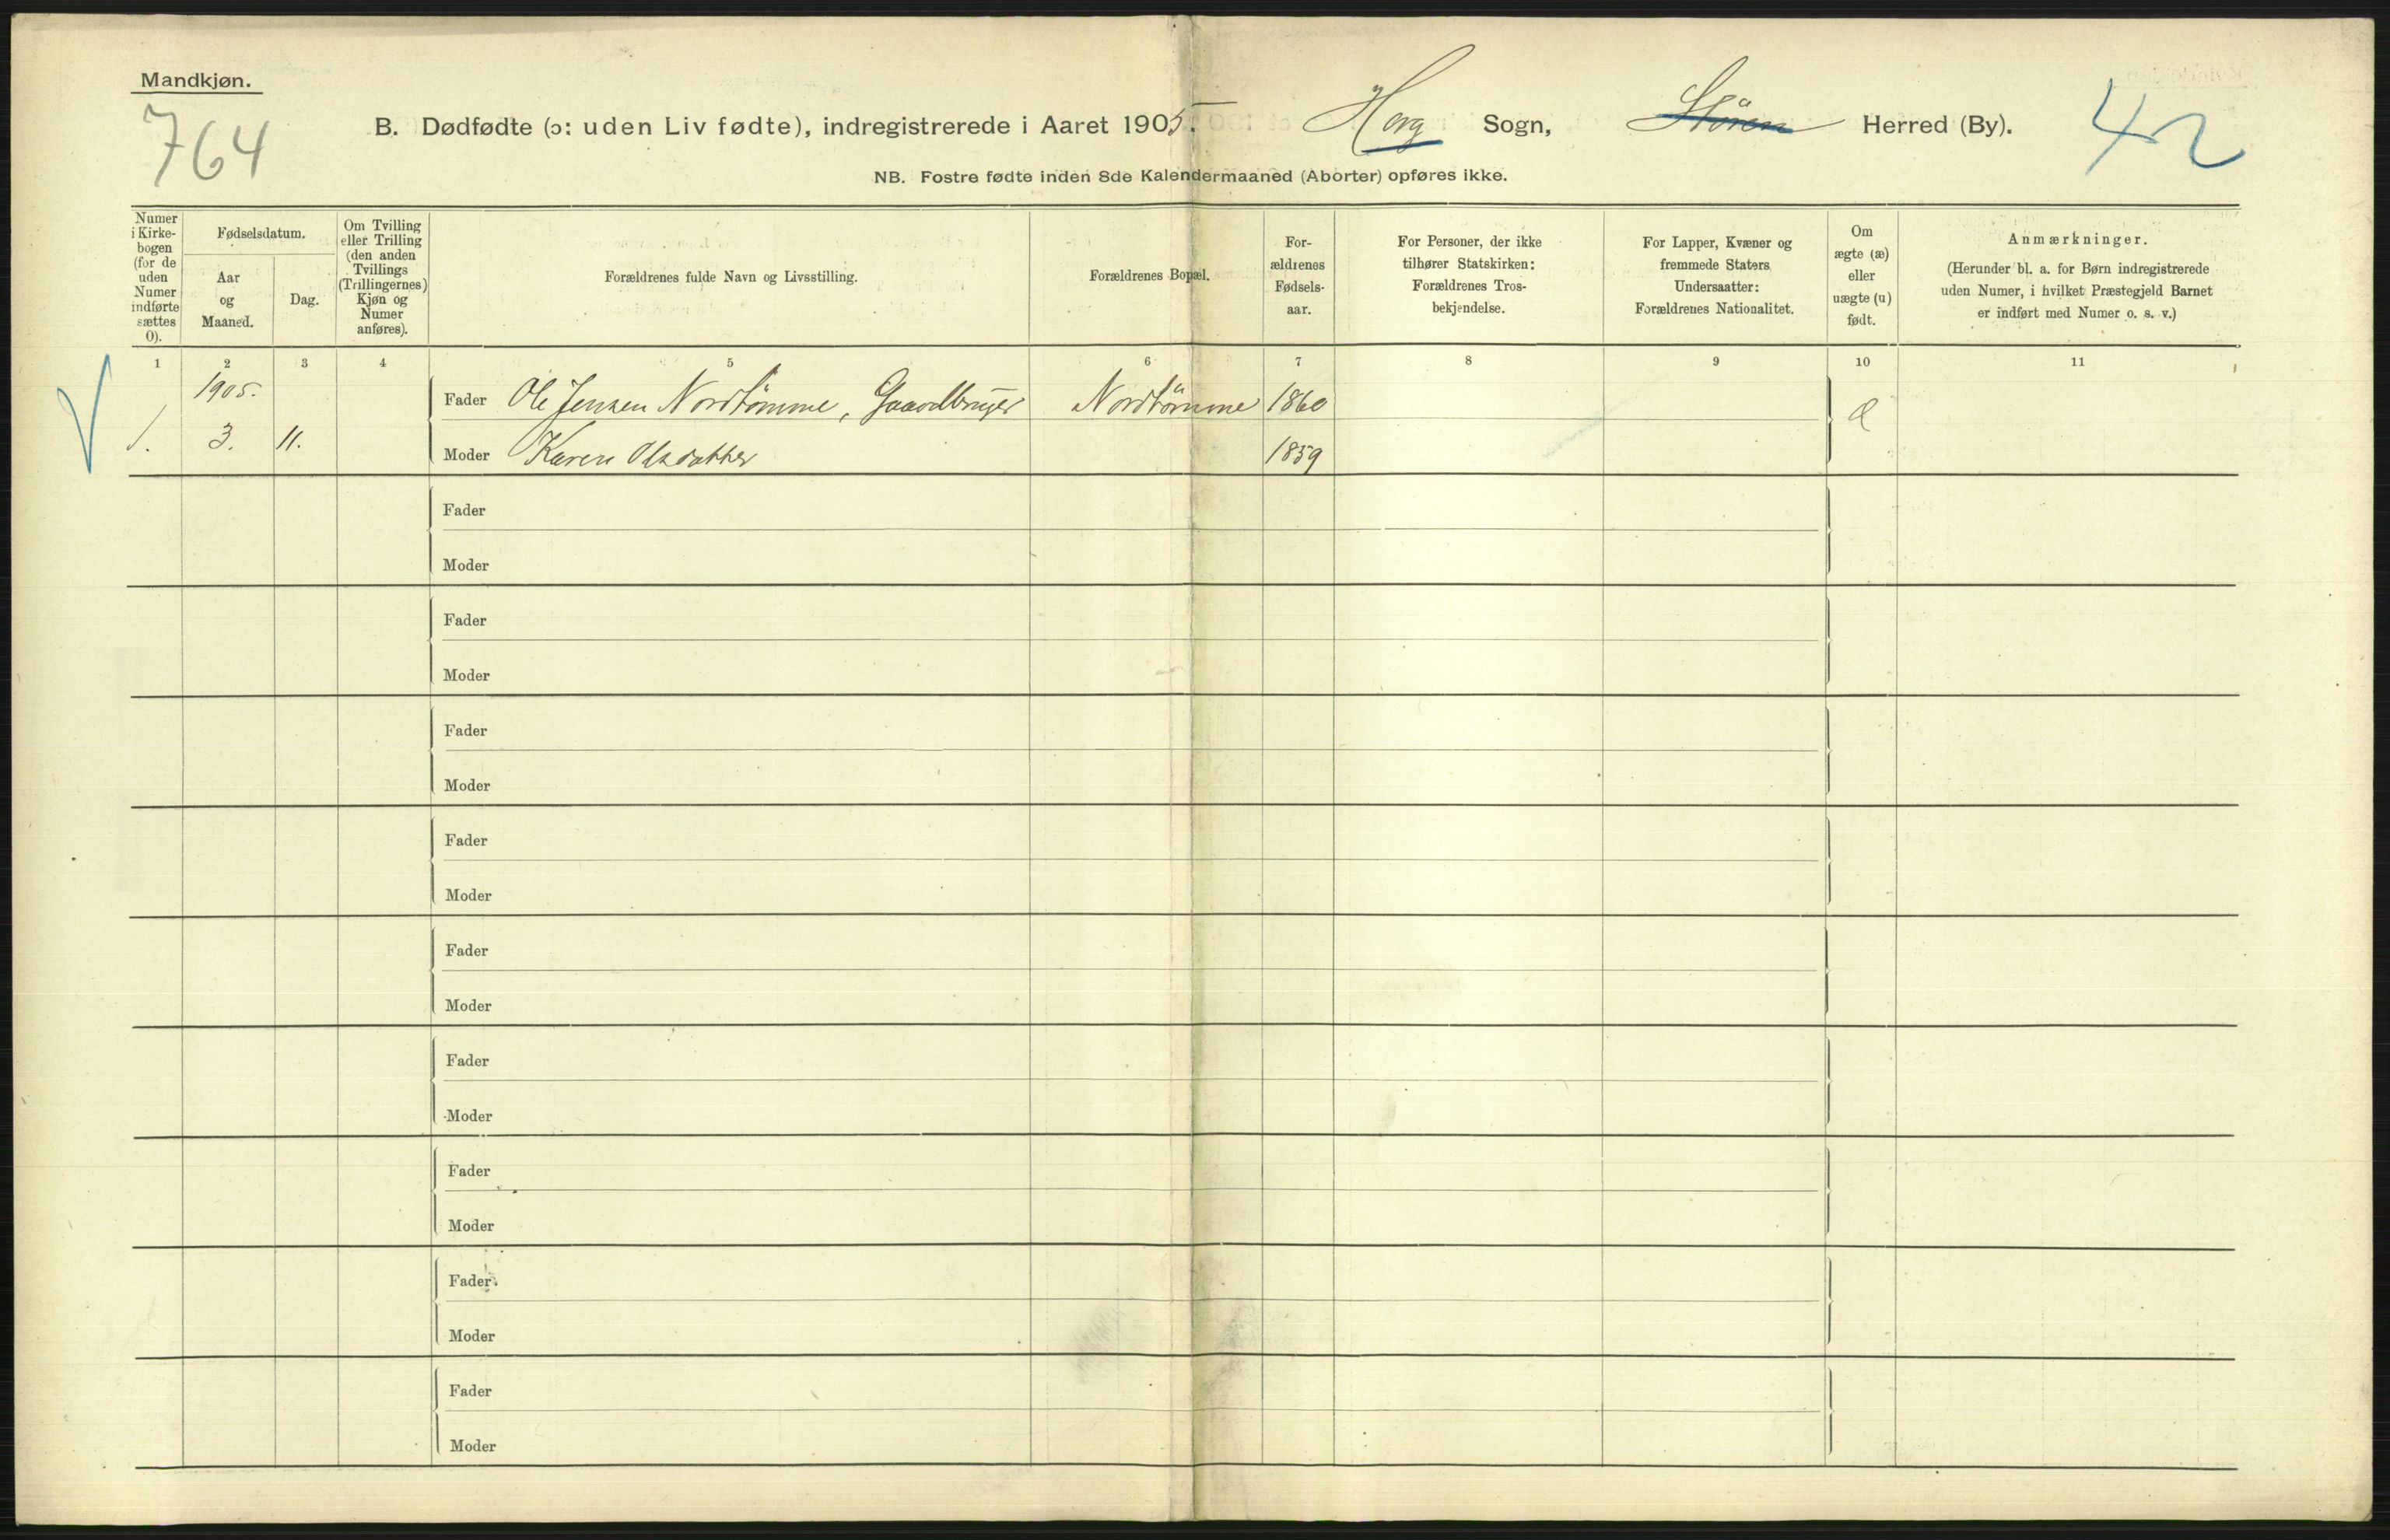 Mandkjøn.
764
B. Dødfødte (ɔ: uden Liv fødte), indregistrerede i Aaret 1905. Horg Sogn, Støren Herred (By). 42
NB. Fostre fødte inden 8de Kalendermaaned (Aborter) opføres ikke.
Numer i Kirkebogen (for de uden Numer indførte sættes 0).
Fødselsdatum.
Aar og Maaned.
Dag.
Om Tvilling eller Trilling (den anden Tvillings (Trillingernes) Kjøn og Numer anføres).
Forældrenes fulde Navn og Livsstilling.
Forældrenes Bopæl.
For-ældrenes Fødsels-aar.
For Personer, der ikke tilhører Statskirken: Forældrenes Tros-bekjendelse.
For Lapper, Kvæner og fremmede Staters Undersaatter: Forældrenes Nationalitet.
Om ægte (æ) eller uægte (u) født.
Anmærkninger.
(Herunder bl. a. for Børn indregistrerede uden Numer, i hvilket Præstegjeld Barnet er indført med Numer o. s. v.)
1 2 3 4 5 6 7 8 9 10 11
1905.
Fader Ole Jensen Nordtömme, Gaardbruger Nordtömme 1860 æ
1. 3. 11.
Moder Karen Olsdatter 1859
Fader
Moder
Fader
Moder
Fader
Moder
Fader
Moder
Fader
Moder
Fader
Moder
Fader
Moder
Fader
Moder
Fader
Moder